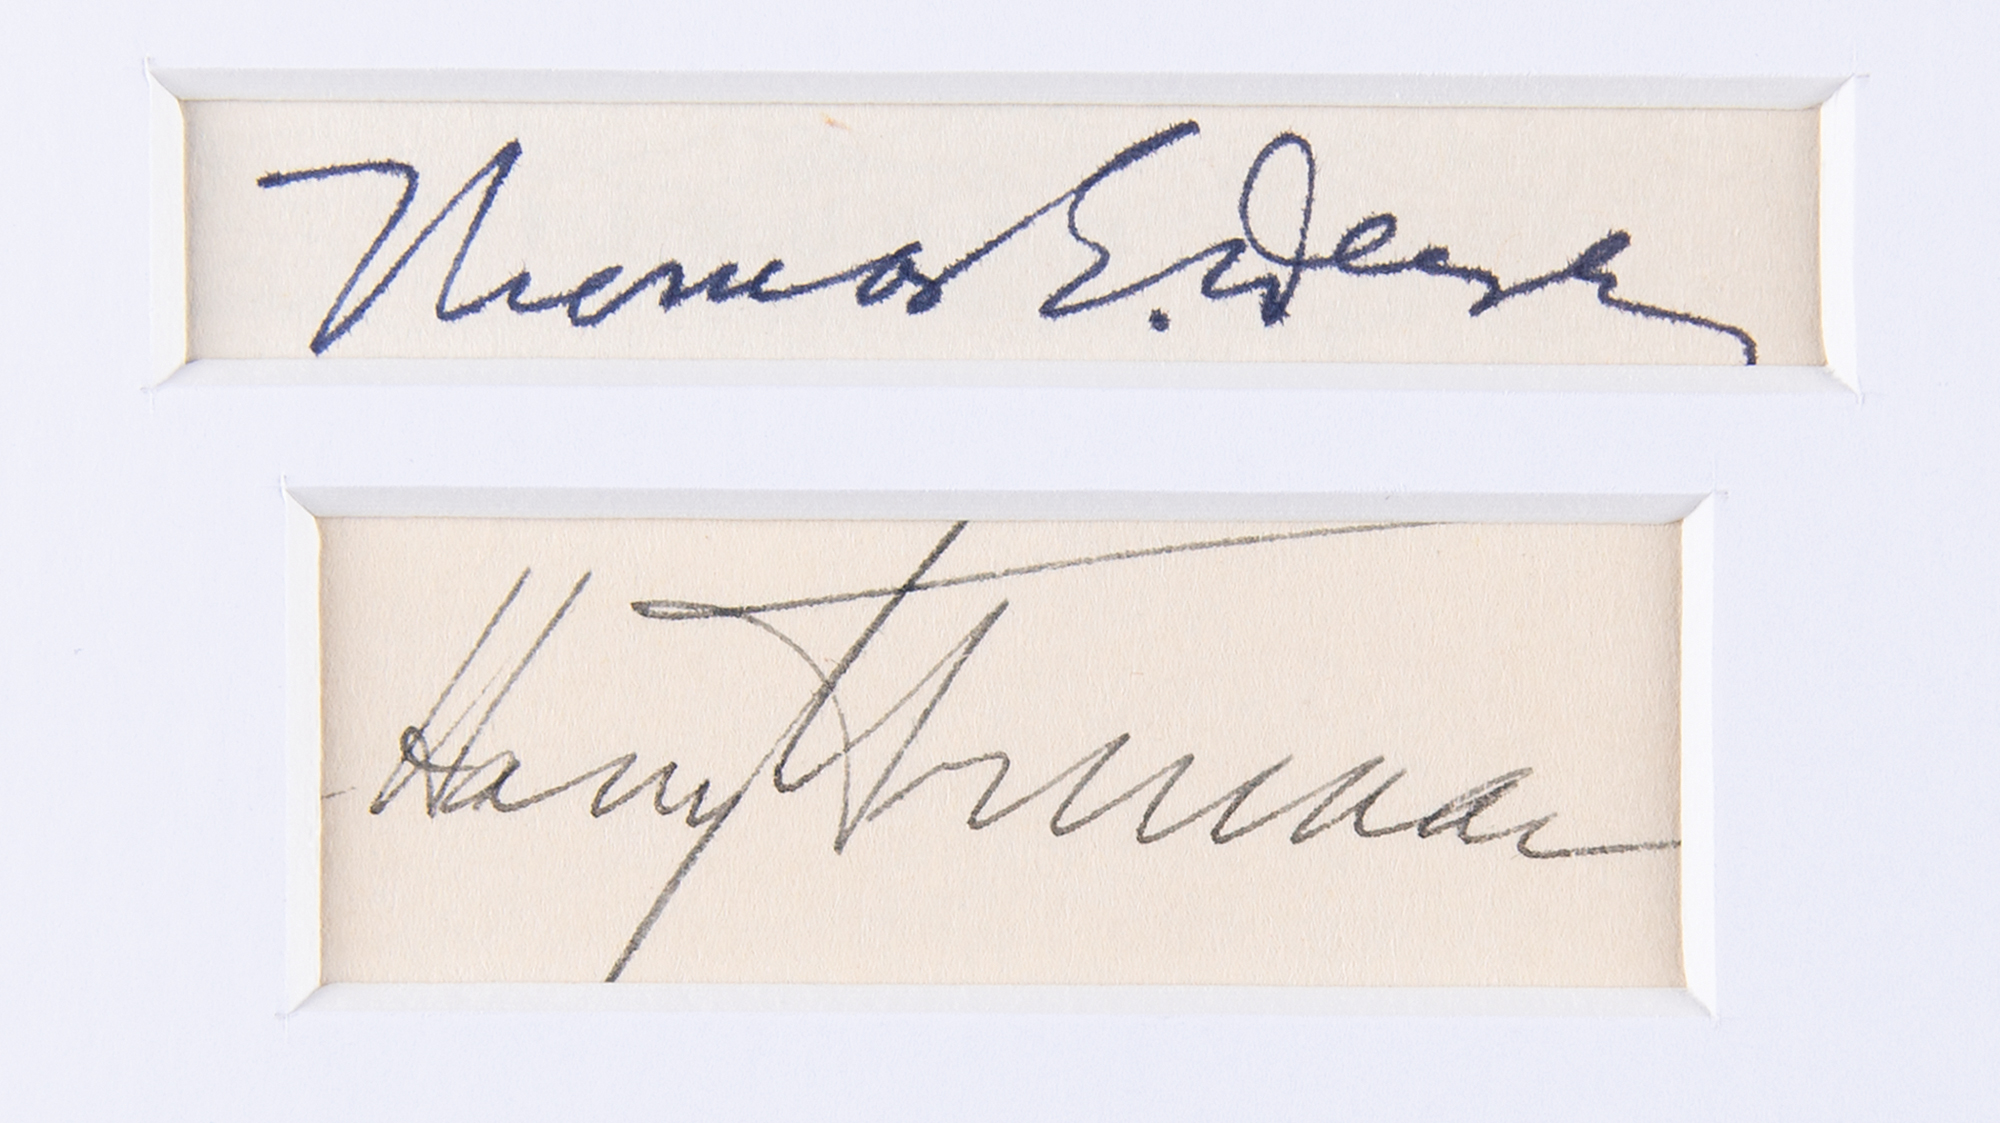 Thomas E. Dewey
Harry Truman